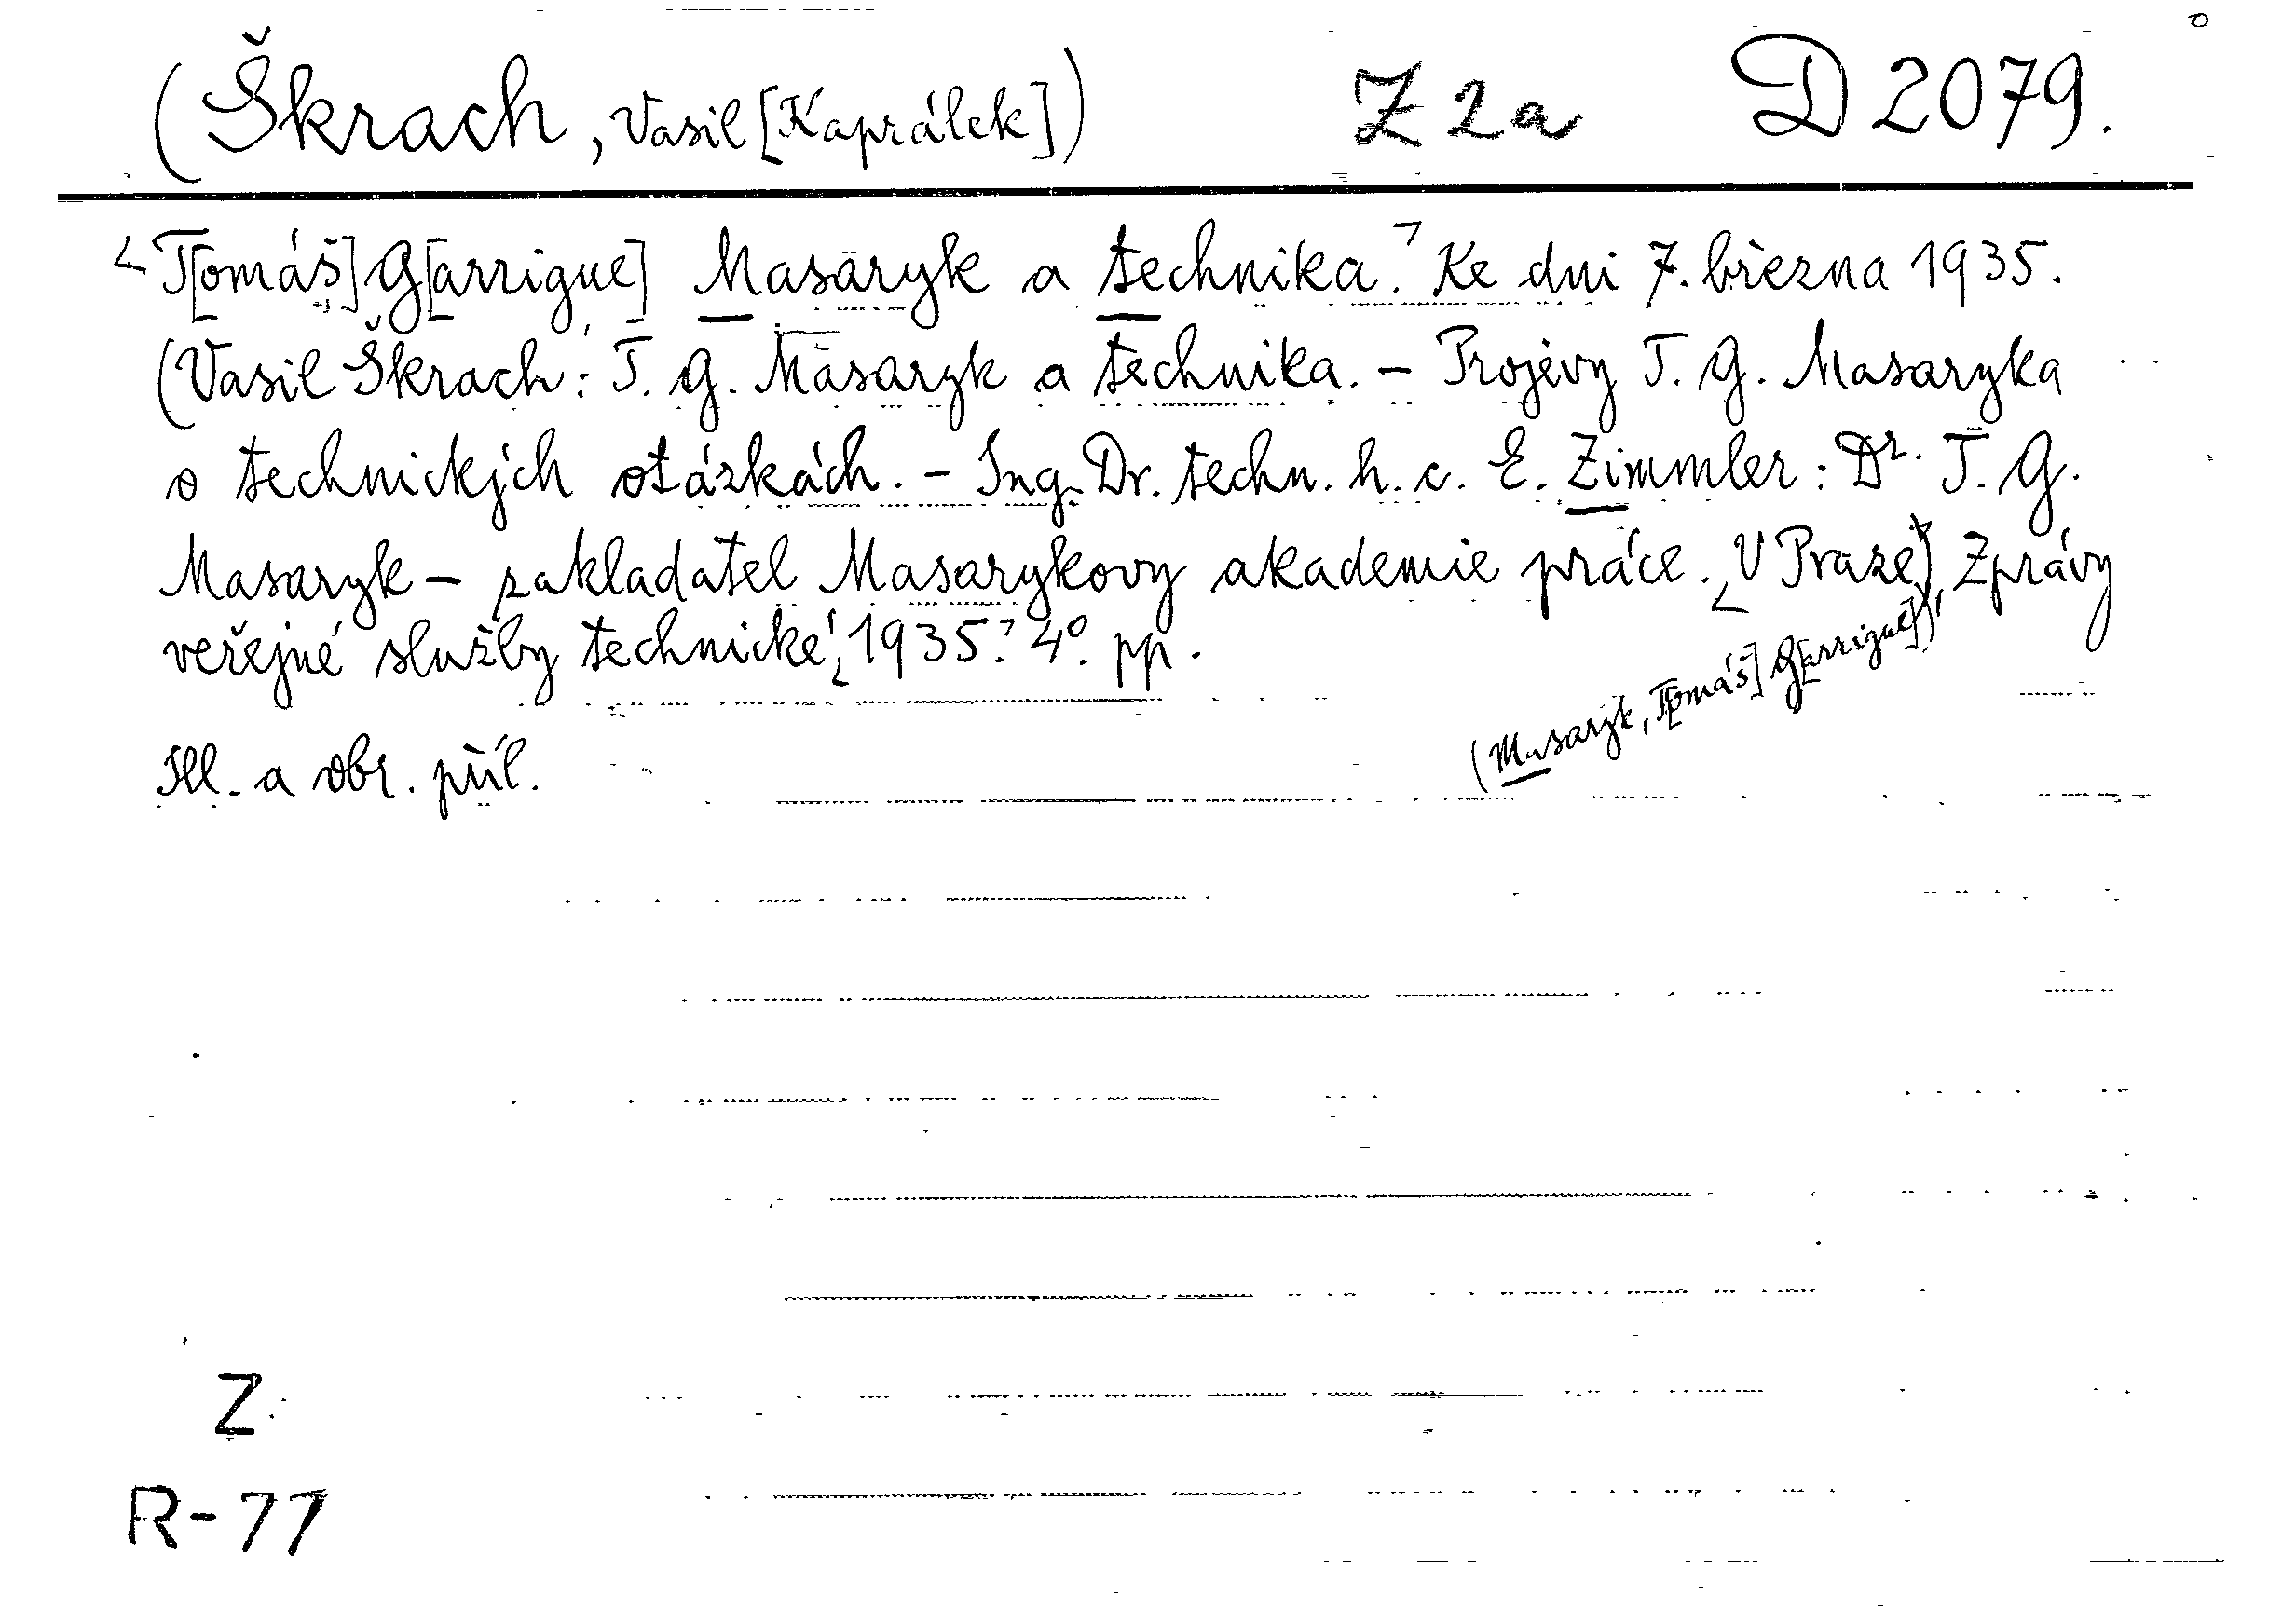 (Škrach, Vasil [Kaprálek]) Z 2a D 2079.
T[omáš] G[arrigue] Masaryk a technika. Ke dni 7. března 1935.
(Vasil Škrach: T. G. Masaryk a technika. – Projevy T. G. Masaryka
o technických otázkách. – Ing. Dr. techn. h. c. E. Zimmler: Dr. T. G.
Masaryk – zakladatel Masarykovy akademie práce. V Praze), Zprávy
veřejné služby technické, 1935. 4°. pp.
(Masaryk, T[omáš] G[arrigue])
Ill. a obr. příl.
Z
R-77